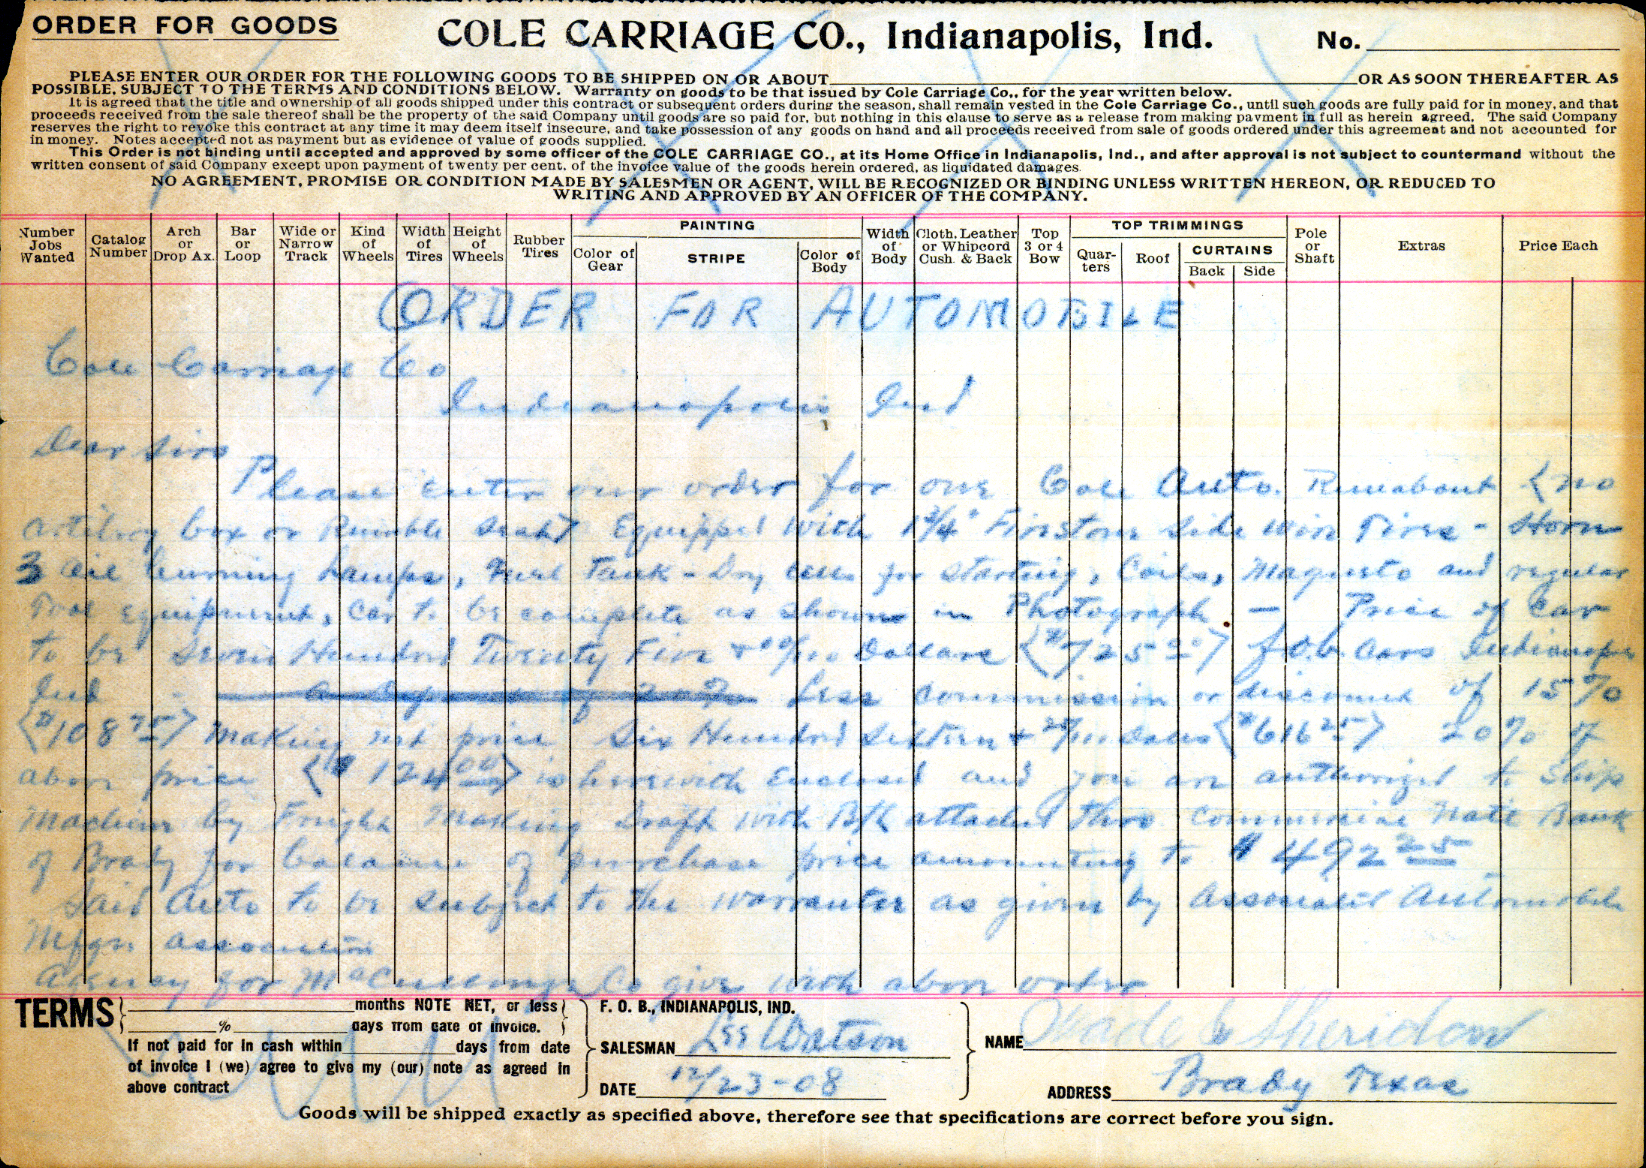 ORDER FOR GOODS
COLE CARRIAGE CO., Indianapolis, Ind.
No.
PLEASE ENTER OUR ORDER FOR THE FOLLOWING GOODS TO BE SHIPPED ON OR ABOUT OR AS SOON THEREAFTER AS
POSSIBLE, SUBJECT TO THE TERMS AND CONDITIONS BELOW. Warranty on goods to be that issued by Cole Carriage Co., for the year written below.
It is agreed that the title and ownership of all goods shipped under this contract or subsequent orders during the season, shall remain vested in the Cole Carriage Co., until such goods are fully paid for in money, and that
proceeds received from the sale thereof shall be the property of the said Company until goods are so paid for, but nothing in this clause to serve as a release from making payment in full as herein agreed. The said Company
reserves the right to revoke this contract at any time it may deem itself insecure, and take possession of any goods on hand and all proceeds received from sale of goods ordered under this agreement and not accounted for
in money. Notes accepted not as payment but as evidence of value of goods supplied.
This Order is not binding until accepted and approved by some officer of the COLE CARRIAGE CO., at its Home Office in Indianapolis, Ind., and after approval is not subject to countermand without the
written consent of said Company except upon payment of twenty per cent. of the invoice value of the goods herein ordered, as liquidated damages.
NO AGREEMENT, PROMISE OR CONDITION MADE BY SALESMEN OR AGENT, WILL BE RECOGNIZED OR BINDING UNLESS WRITTEN HEREON, OR REDUCED TO
WRITING AND APPROVED BY AN OFFICER OF THE COMPANY.
Number Jobs Wanted
Catalog Number
Arch or Drop Ax.
Bar or Loop
Wide or Narrow Track
Kind of Wheels
Width of Tires
Height of Wheels
Rubber Tires
PAINTING
Color of Gear
STRIPE
Color of Body
Width of Body
Cloth, Leather or Whipcord Cush. & Back
Top 3 or 4 Bow
TOP TRIMMINGS
Quarters
Roof
CURTAINS
Back
Side
Pole or Shaft
Extras
Price Each
ORDER FOR AUTOMOBILE
Cole Carriage Co
Indianapolis Ind
Dear Sirs
Please enter our order for one Cole Auto. Runabout (no
artilery box or Rumble seat) Equipped with 1 3/4" Firestone side wire Tires - Horn
3 oil burning Lamps, Fuel Tank - Dry cells for starting, Coils, Magneto and regular
Tool equipment, car to be complete as shown in Photograph — Price of car
to be Seven Hundred Twenty Five + 00/100 Dollars ($725.00) f.o.b. cars Indianapolis
Ind - Less commission or discount of 15%
($108.75) Making net price Six Hundred Sixteen + 25/100 Dolls ($616.25) 20% of
above price ($124.00) is herewith Enclosed and you are authorized to ship
Machine by Freight Making Draft with B/L attached thro. Commercial Natl Bank
of Brady for balance of purchase price amounting to $492.25
Said Auto to be subject to the warrantee as given by Associated Automobile
Mfgrs association
Agency for McCulloch Co give with above order
TERMS
months NOTE NET, or less
% days from date of invoice.
If not paid for in cash within days from date
of invoice I (we) agree to give my (our) note as agreed in
above contract
F. O. B., INDIANAPOLIS, IND.
SALESMAN Lee Watson
DATE 12/23-08
NAME Wade & Sheridan
ADDRESS Brady Texas
Goods will be shipped exactly as specified above, therefore see that specifications are correct before you sign.